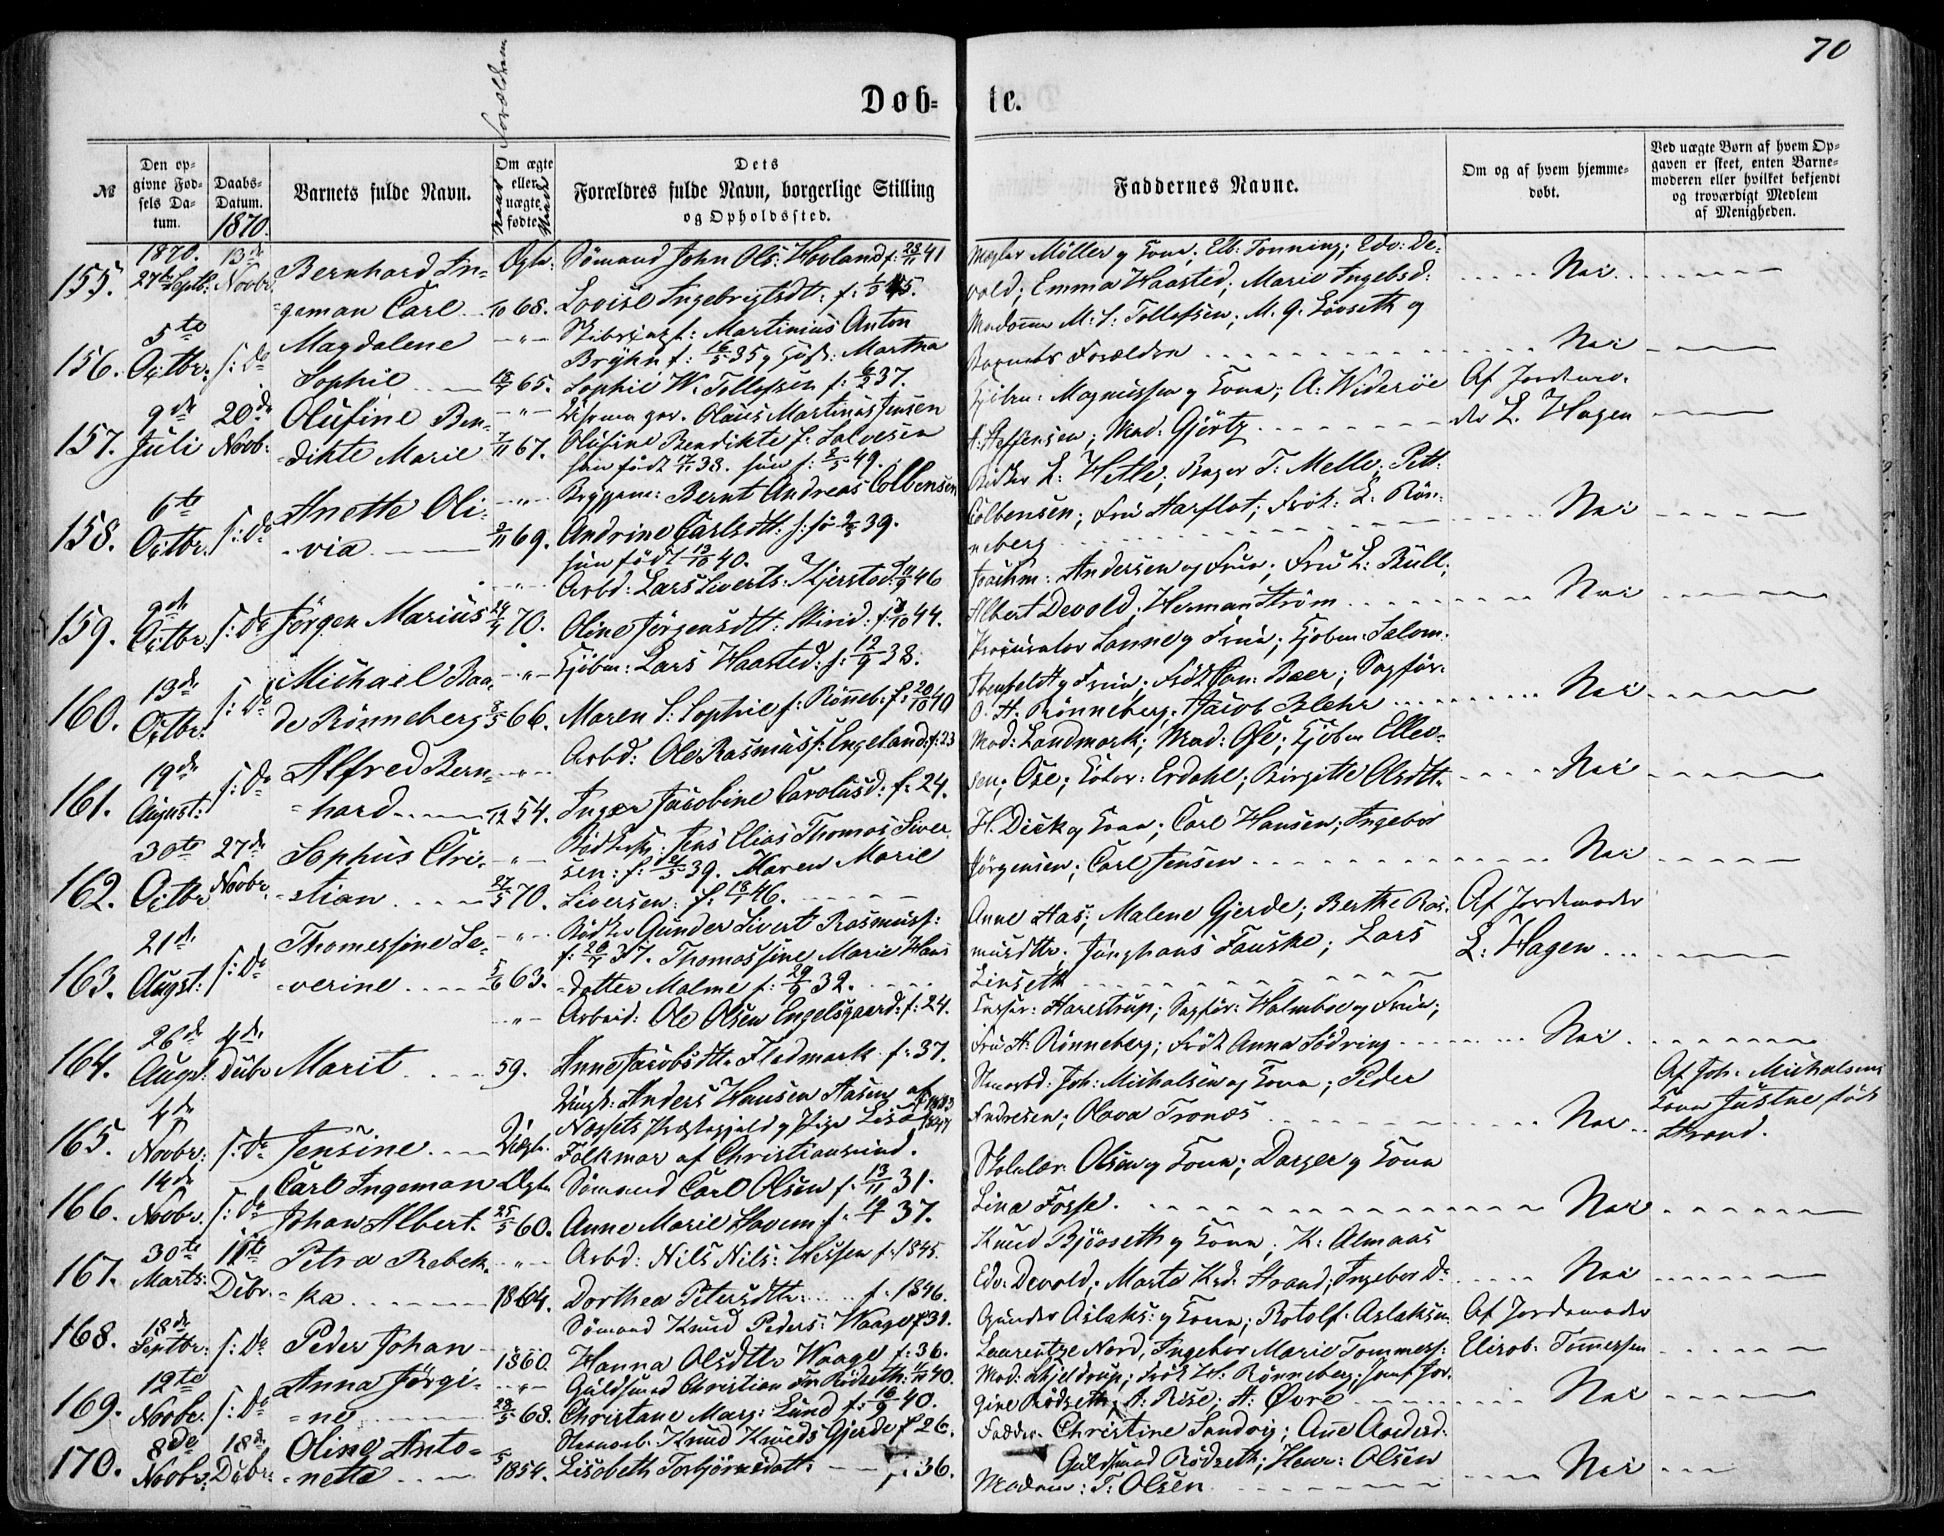 70
Døb= te.
№
Den op=
givne Fød=
sels Da=
tum.
Daabs=
Datum.
1870.
Barnets fulde Navn.
Om ægte
eller
uægte
fødte
Dets
Forældres fulde Navn, borgerlige Stilling
og Opholdssted.
Faddernes Navne.
Om og af hvem hjemme=
døbt.
Ved uægte Børn af hvem Op=
gaven er skeet, enten Barne=
moderen eller hvilket bekjendt
og troværdigt Medlem
af Menigheden.
155. 1870. 27de Septb: 13de Novbr.
Bernhard In=
=geman Carl
Ægte 68.
Sømand John Ols: Hovland f: 28/11 41
Lovise Ingebrigtsdt: f: 1/5 45.
Mægler Möller og Kone; Elb: Tonning; Edv: De=
vold; Emma Haasted; Marie Ingebsd:
Nei
156. 5te Octbr. s: D.
Magdalene
Sophie
65.
Martinius Anton
Brÿhn f: 16/5 35 og Martha
Sophie W. Tollefsen f: 37.
Madame M: L: Tollefsen; M. G. Løvseth og
Barnets Forældre
Nei
157. 9de Juli 20de Novb:
Olufine Ben=
=dikte Marie
67.
Olaus Martinus Jensen
Olufine Bendikte f: Salvesen
han født 38. hun f: 8/5 49.
Magnussen og Kone; A: Widerøe
Steffensen; Mad: Gjörtz
Af Jordemo=
der L. Hagen
158. 6te Octbr. s: D.
Anette Oli=
=via
69.
Bernt Andreas Colbensen
Andrine Carlsdt: 39.
hun født 13/10 40.
L: Hetle; Bager T: Melle; Pett:
Colbensen; Fru Harflot; Frøk: L: Røn=
neberg
Nei
159. 9de Octbr. s: D.
Jørgen Marius
70.
Arbd: Lars Siverts: Kjerstad f: 46
Oline Jørgensdt: f: 44.
Andersen og Frue; Fru L: Büll;
Albert Devold; Herman Strøm
Nei
160. 13de Octbr. s: D.
Michael Raa
de Rønneberg
66.
Kjøbm: Lars Haasted: f: 12/9 38.
Maren S: Sophie f: Rønneb: f: 20/10 40
Procurator Sanne og Frue; Kjøbm: Salom:
og Frue; Baer; Sagfør:
O: A: Rønneberg; Jacob Blehr
Nei
161. 19de August: s: D.
Alfred Bern=
=hard
54.
Arbd: Ole Rasmus: Engeland: f: 23
Inger Jacobine Carolusd: f: 24.
Mad: Landmark; Mad: Øie; Kjøbm Ellev=
sen; Ose; Erdahl; Birgitte Olsdt.
Nei
162. 30te Octbr 27de Novbr.
Sophus Chri=
=stian
27/5 70.
Jens Elias Thomas Siver
sen: f: 39. Maren Marie
Siversen f: 18/1 46.
H. Dick og Kone; Carl Hansen; Ingebor
Jørgensen; Carl Jensen
Nei
163. 21de Augst: s: D.
Thomessine Se=
=verine
63.
Gunder Sivert Rasmuss:
f: 26/7 37. Thomassine Marie Hans
=datter Malme f: 29/9 32.
Anne Aas; Malene Gjerde; Berthe Ras:
musdtr: Junghans Fauske; Lars
Linseth
Af Jordemoder
L: Hagen
164. 26de Augst: 4de Debr
Marit
59.
Arbeid: Ole Olsen Engelsgaard: f: 24.
Anne Jacobsdtr. Flademark f: 37.
Harestrup; Sagfør: Halmboe og Frue;
Fru A: Rønneberg; Frøk Anna Sødring
Nei
165. 4de Novbr. s: D.
Jensine
Uægte.
Ungk: Anders Hansen Aasen af
Nessets Præstegjeld og Pige Lisa
Folkmar af Christiansund.
Joh: Michalsen og Kone; Peder
Andresen; Olava Tronæs
Nei
Af Joh: Michalsens
Kone Justne født
Strand.
166. 14de Novbr. s: D.
Carl Ingeman
Johan Albert.
Ægte 25/5 60.
Sømand Carl Olsen f: 13/11 31.
Anne Marie Havem f: 37.
Skolelær: Olsen og Kone; Darger og Kone
Lina Fosse.
Nei
167. 30te Marts: 11te Debr.
Petra Rebek=
=ka
1864.
Arbd: Nils Nils: Hessen f: 1845.
Dorthea Petersdtr: f: 1846.
Knud Bjørseth og Kone; K: Almaas
Edv: Devold; Marte Knd: Strand; Ingebor D.
Nei
168. 18de Septbr: s: D.
Peder Johan
1860.
Sømand Knud Peders: Waage f 38.
Hanna Olsdtr Waage f: 36.
Gunder Aslaks: og Kone; Rotolf: Aslaksen
Laurentze Nord, Ingebor Marie Tommers:
Af Jordemoder
Elisab: Tomersen
169. 12te Novbr. s: D.
Anna Jørgi=
=ne
28/5 68.
Guldsmed Christian Rødseth: 40.
Christiane Marg: Lund f: 16/9 40.
Mad: Skjeldrup; Frøk H: Rønneberg; Jomf Jør:
gine Rødseth; A: Rise; A: Øvre
Nei
170. 8de Novbr: 18de Debr:
Oline Anto=
=nette
1854.
Knud Knuds Gjerde f 26.
Lisabeth Torbjørnsdatt: f: 36.
Fadder. Christine Sandvig; Ane Andersd.
Guldsmed Rødseth; Hans: Olsen
Madam: T: Olsen
Nei